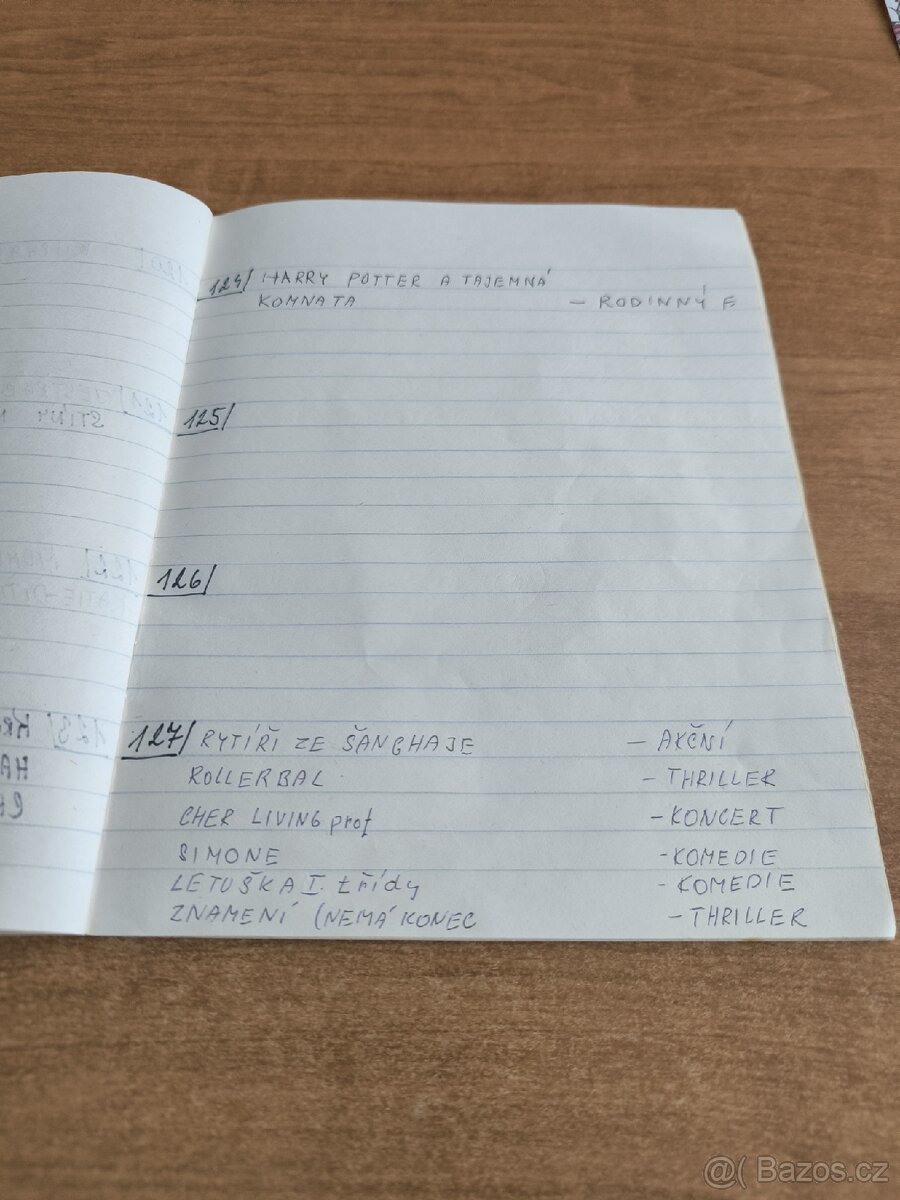 124/ HARRY POTTER A TAJEMNÁ
KOMNATA – RODINNÝ F
125/
126/
127/ RYTÍŘI ZE ŠANGHAJE – AKČNÍ
ROLLERBAL – THRILLER
CHER LIVING prof – KONCERT
SIMONE – KOMEDIE
LETUŠKA I. třídy – KOMEDIE
ZNAMENÍ (NEMÁ KONEC – THRILLER
@( Bazos.cz